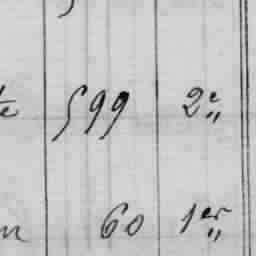 te 599 2e„
60 1er„